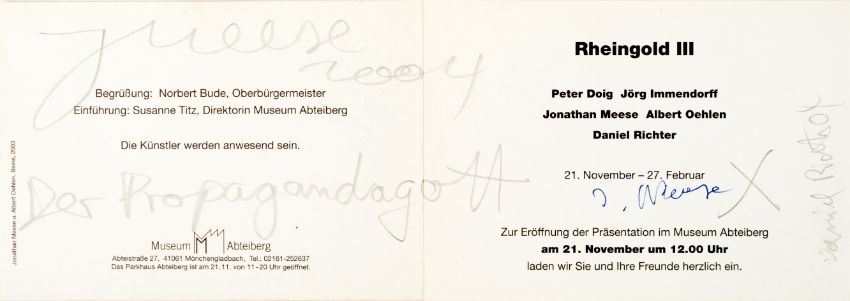 JMeese
2004
Begrüßung: Norbert Bude, Oberbürgermeister
Einführung: Susanne Titz, Direktorin Museum Abteiberg
Die Künstler werden anwesend sein.
Der Propagandagott
Museum M Abteiberg
Abteistraße 27, 41061 Mönchengladbach, Tel.: 02161-252637
Das Parkhaus Abteiberg ist am 21.11. von 11-20 Uhr geöffnet.
Jonathan Meese u. Albert Oehlen, Beine, 2003
Rheingold III
Peter Doig Jörg Immendorff
Jonathan Meese Albert Oehlen
Daniel Richter
21. November – 27. Februar
J. Meese X
Zur Eröffnung der Präsentation im Museum Abteiberg
am 21. November um 12.00 Uhr
laden wir Sie und Ihre Freunde herzlich ein.
Daniel